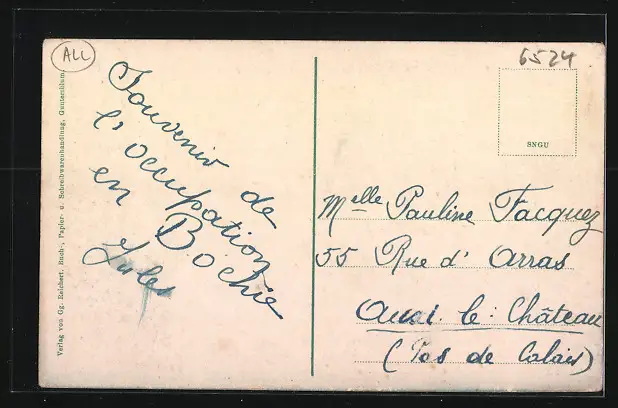 ALL
6524
Souvenir de
l'occupation
en Bochie
Jules
SNGU
Melle Pauline Facquez
55 Rue d' Arras
Auxi. le. Château
(Pas de Calais)
Verlag von Gg. Reichert, Buch-, Papier- u. Schreibwarenhandlung, Guntersblum.